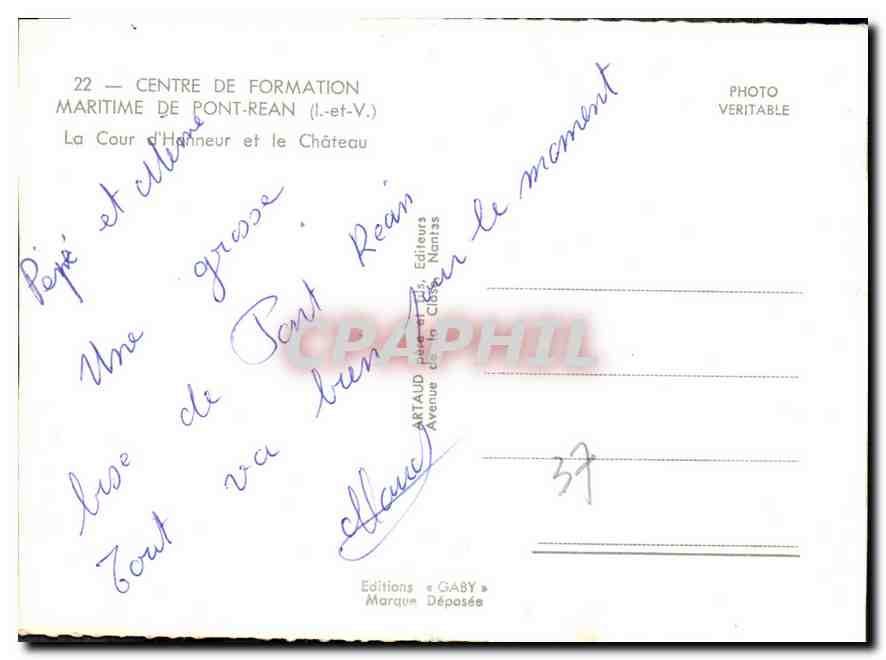 22 — CENTRE DE FORMATION
MARITIME DE PONT-REAN (I.-et-V.)
La Cour d'Honneur et le Château
PHOTO
VERITABLE
Pépé et Mémé
Une grosse
bise de Pont Réan
Tout va bien pour le moment
Maud
ARTAUD père et fils, Editeurs
Avenue de la Close, Nantes
CPAPHIL
37
Editions « GABY »
Marque Déposée